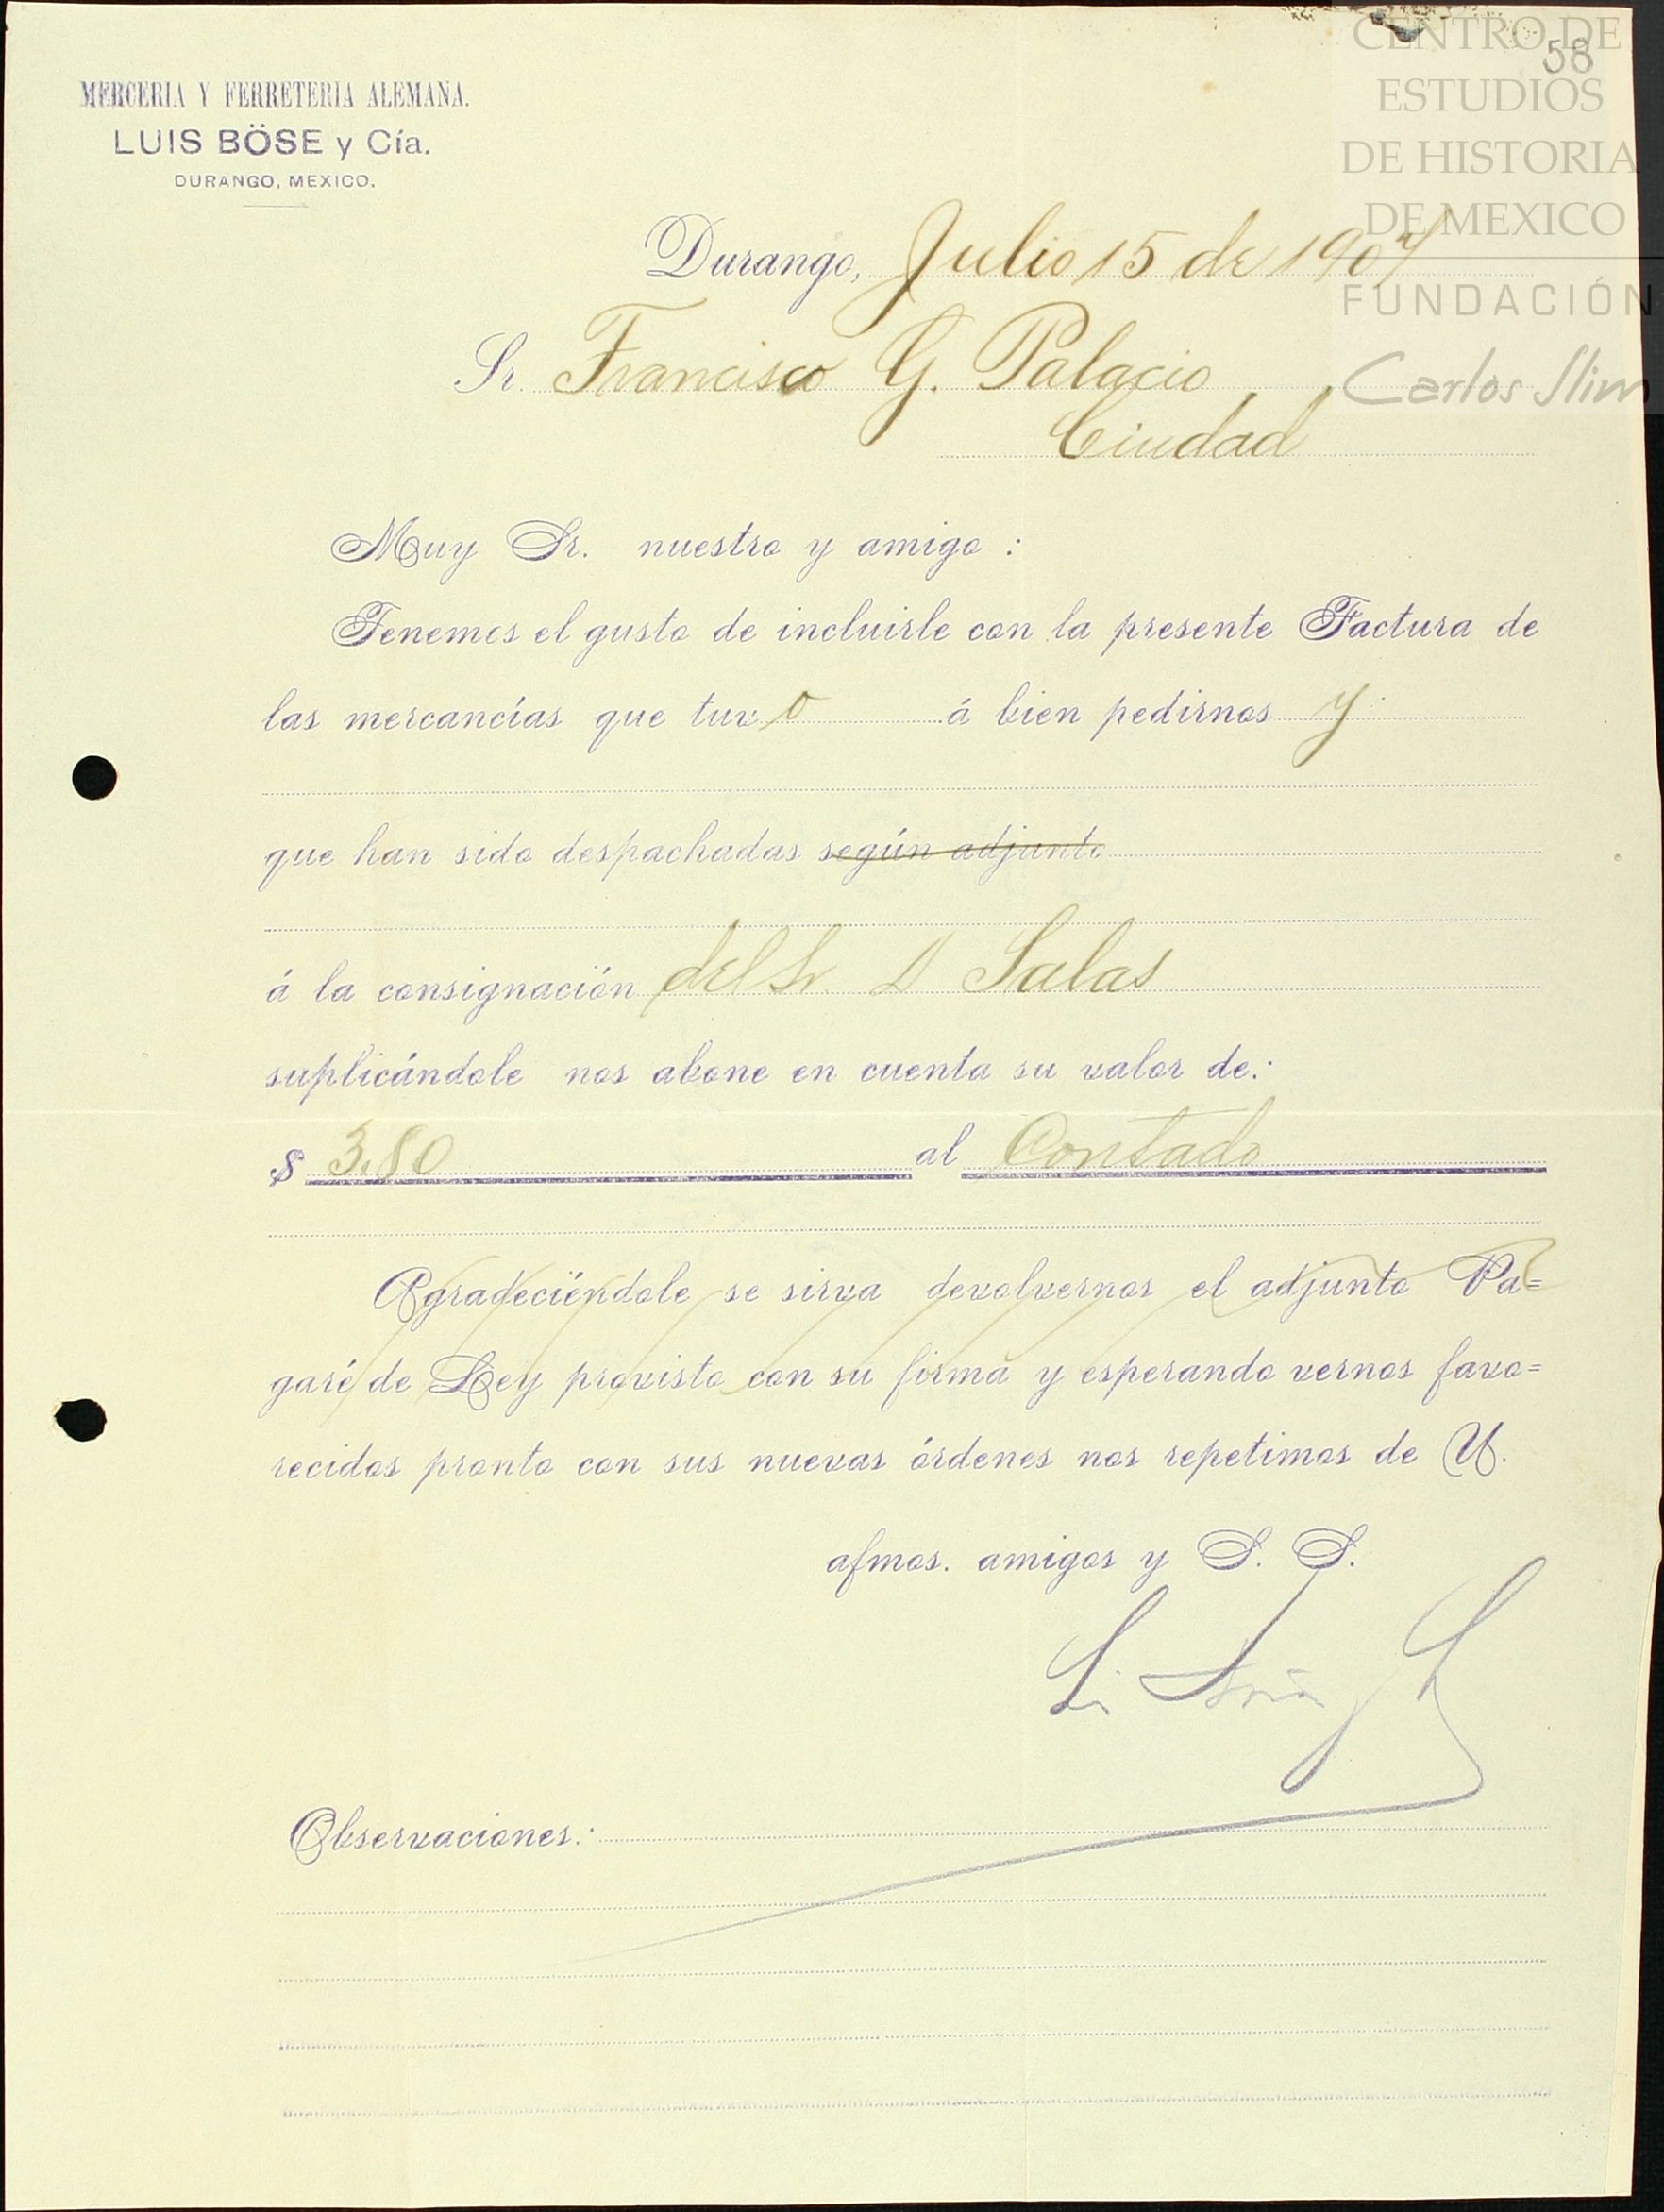 58
CENTRO DE
ESTUDIOS
DE HISTORIA
DE MEXICO
FUNDACIÓN
Carlos Slim
MERCERIA Y FERRETERIA ALEMANA.
LUIS BÖSE y Cía.
DURANGO, MEXICO.
Durango, Julio 15 de 1907
Sr. Francisco G. Palacio
Ciudad
Muy Sr. nuestro y amigo :
Tenemos el gusto de incluirle con la presente Factura de
las mercancías que tuvo á bien pedirnos y
que han sido despachadas según adjunto
á la consignación del Sr. D Salas
suplicándole nos abone en cuenta su valor de:
$ 3.80 al Contado
Agradeciéndole se sirva devolvernos el adjunto Pa=
garé de Ley provisto con su firma y esperando vernos favo=
recidos pronto con sus nuevas órdenes nos repetimos de U.
afmos. amigos y S. S.
Observaciones: